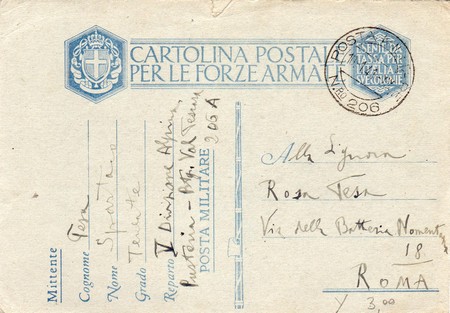 CARTOLINA POSTALE
PER LE FORZE ARMATE
ESENTE DA
TASSA PER
L'ITALIA
E SVE COLONIE
POSTA
N.RO 206
Mittente
Cognome Tesa
Nome Spartaco
Grado Tenente
Reparto V Divisione Alpina
Pusteria - Btg. Val
POSTA MILITARE 206 A
Alla Signora
Rosa Tesa
Via della Batteria Nomentana
18
ROMA
3,00